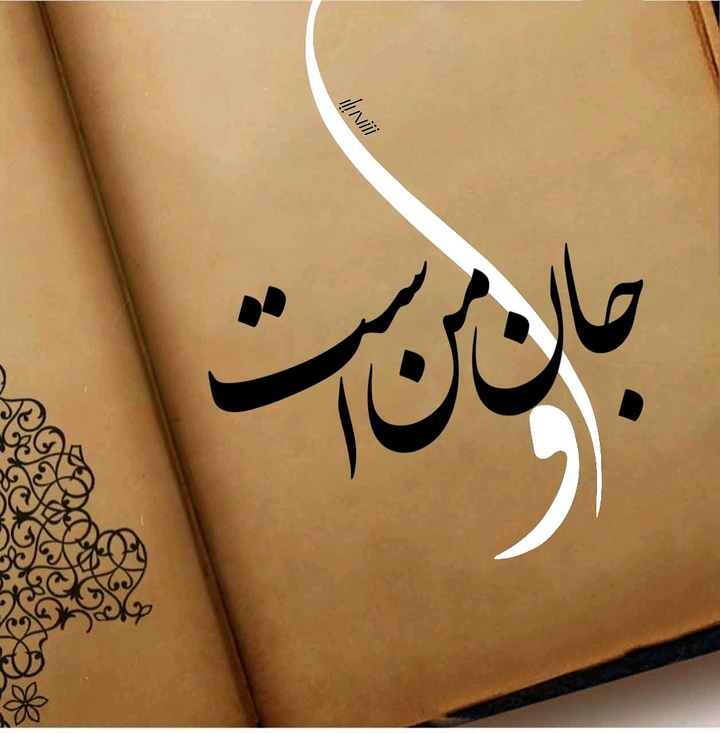 جان من است
او